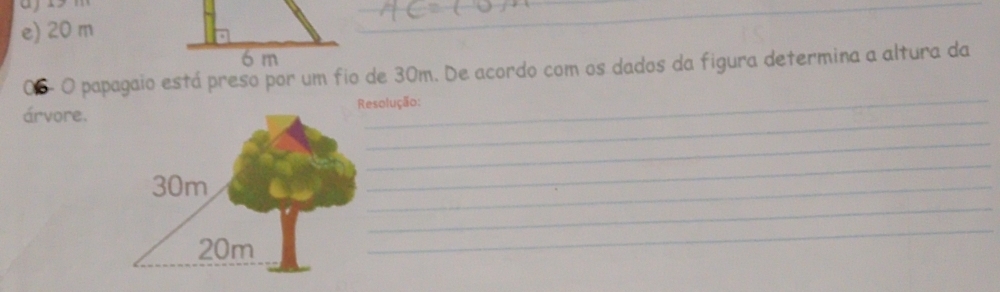 d) 15 m
e) 20 m
AC=
6 m
06- O papagaio está preso por um fio de 30m. De acordo com os dados da figura determina a altura da
árvore.
Resolução:
30m
20m